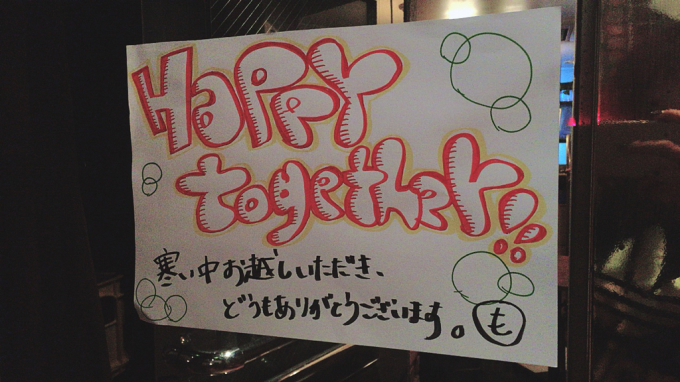 HAPPY
together!!
寒い中お越しいただき、
どうもありがとうございます。も